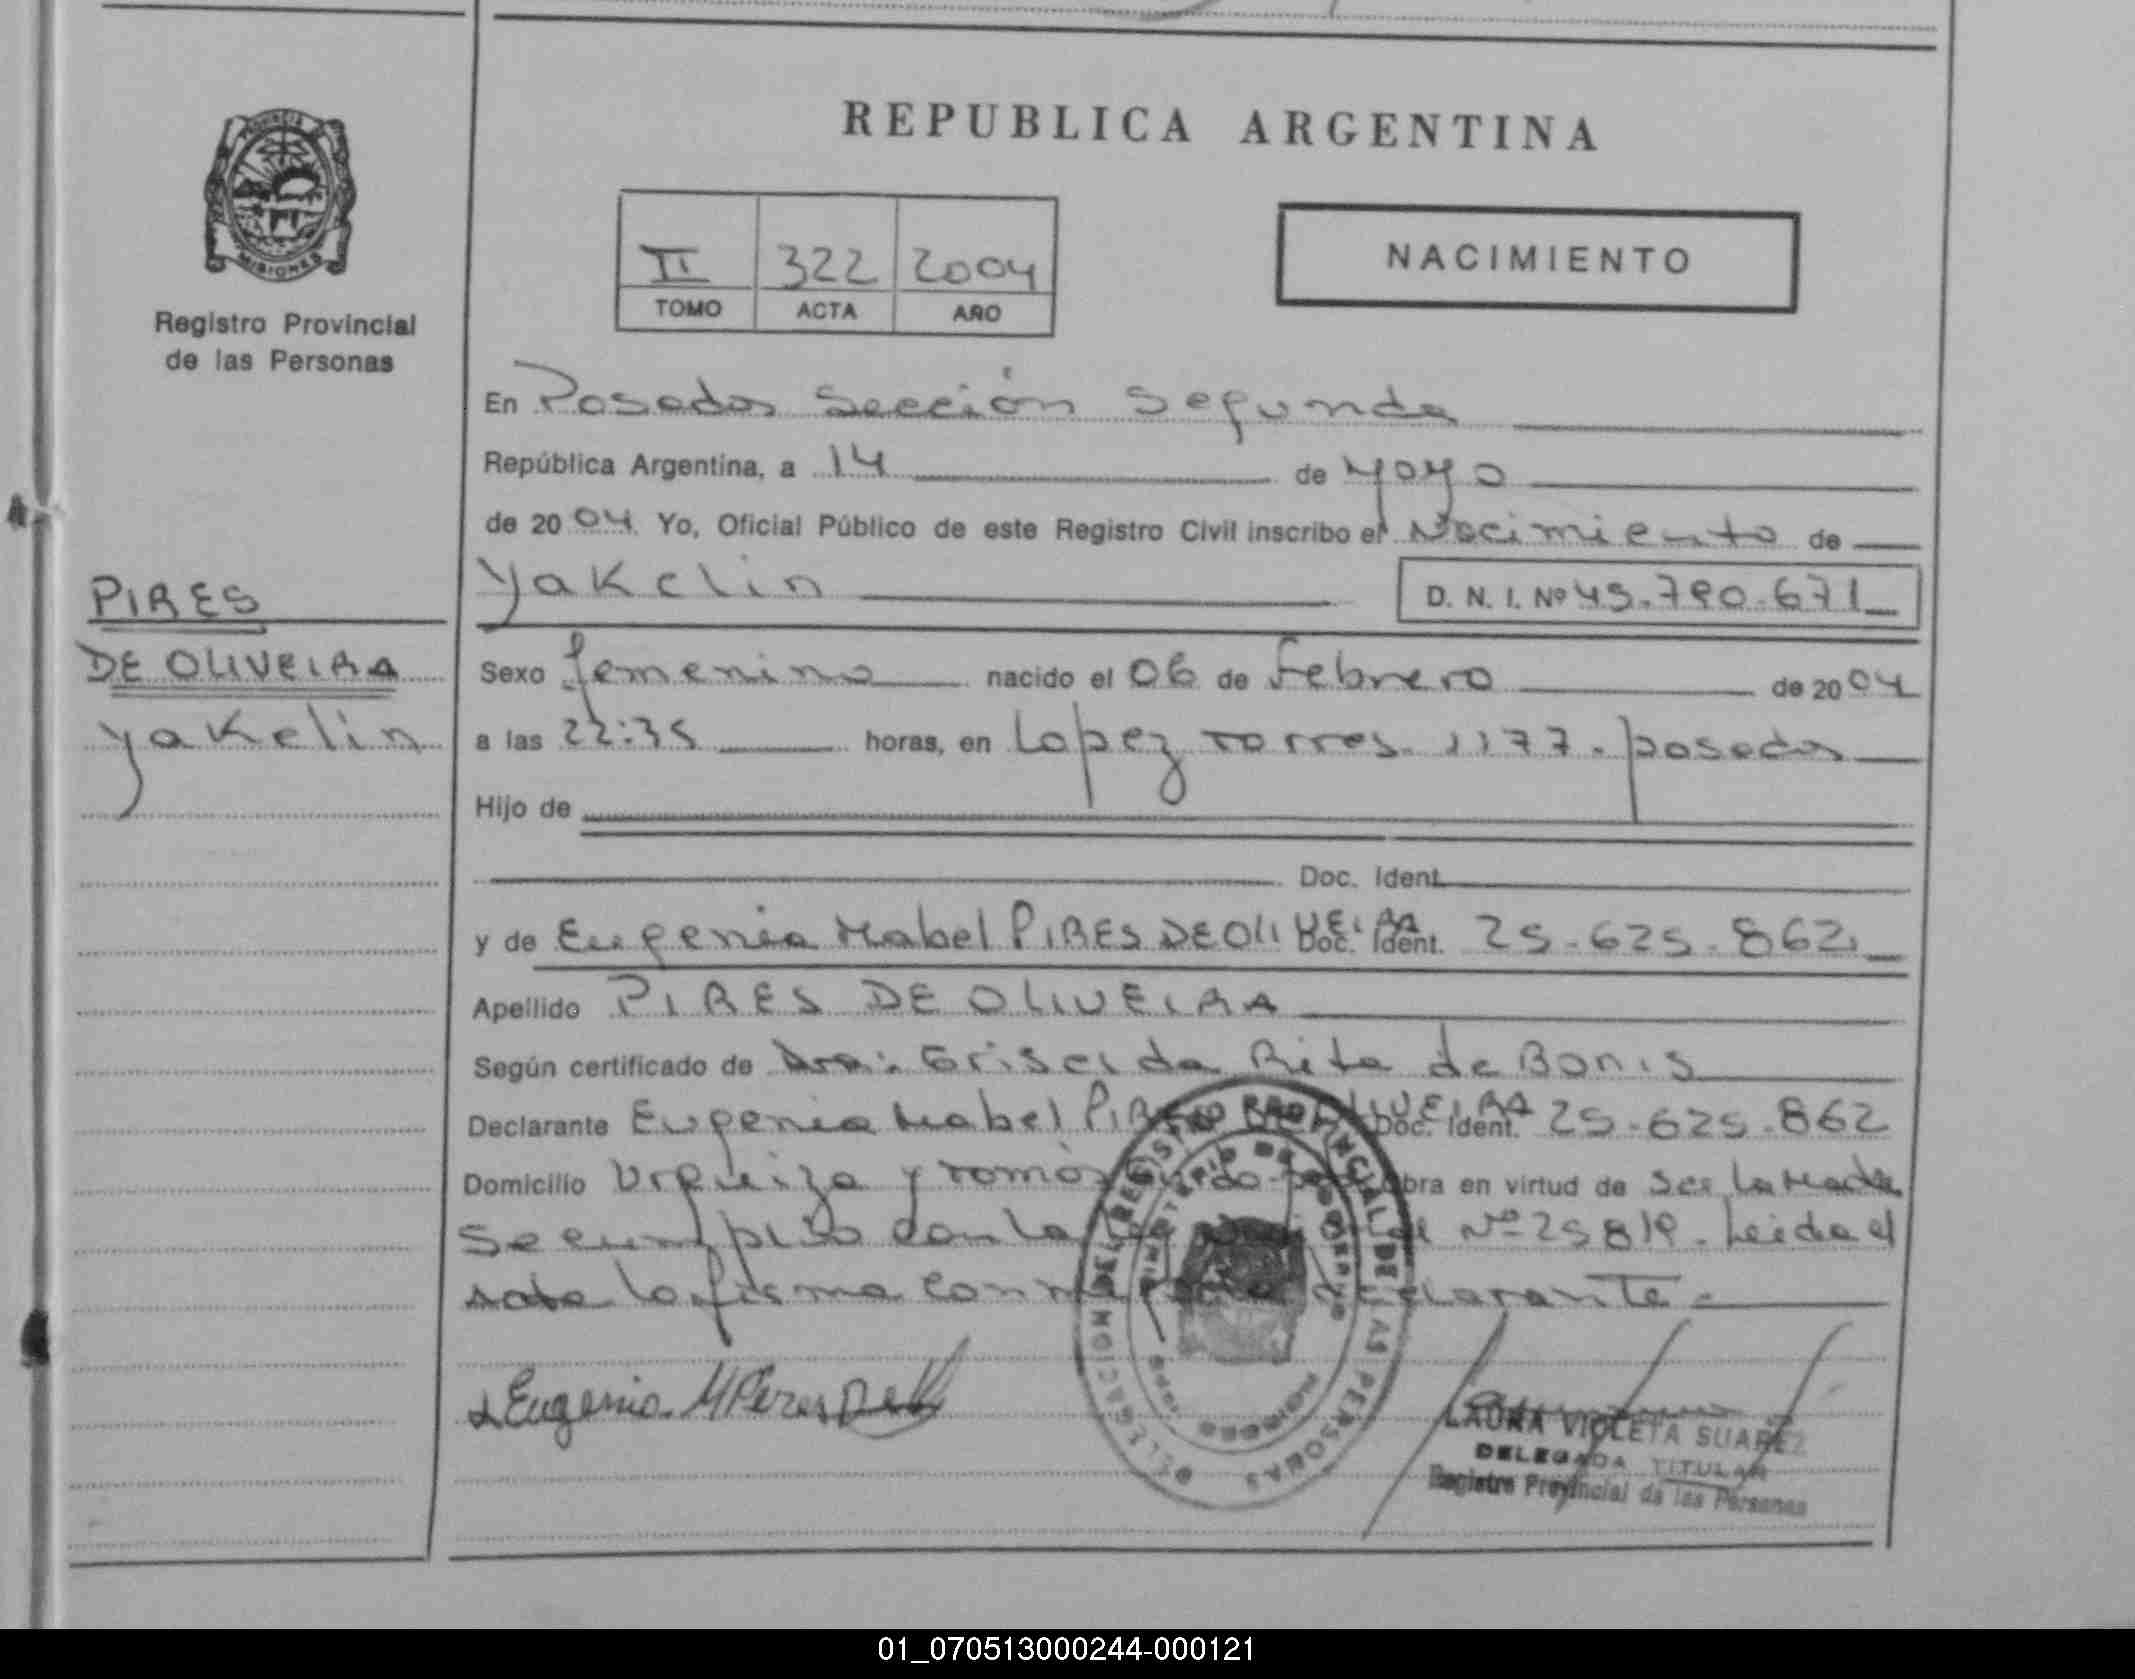 REPUBLICA ARGENTINA
PROVINCIA
MISIONES
Registro Provincial
de las Personas
II 322 2004
TOMO ACTA AÑO
NACIMIENTO
En Posadas Sección Segunda
República Argentina, a 14 de Mayo
de 2004. Yo, Oficial Público de este Registro Civil inscribo el Nacimiento de
Yakelin D. N. I. Nº 45.790.671
PIRES
DE OLIVEIRA
Yakelin
Sexo femenino nacido el 06 de Febrero de 2004
a las 22:35 horas, en Lopez Torres. 1177. posadas
Hijo de
Doc. Ident.
y de Eugenia Mabel PIRES DE OLIVEIRA Doc. Ident. 25.625.862
Apellido PIRES DE OLIVEIRA
Según certificado de Dra: Griselda Rita de Bonis
Declarante Eugenia Mabel PIRES DE OLIVEIRA Doc. Ident. 25.625.862
Domicilio Urquiza y Tomás obra en virtud de ser la Madre
Se cumplió con la Nº 25819. Leida el
acta la firma conmigo declarante.
Eugenia M Peres De
DELEGACION DEL REGISTRO PROVINCIAL DE LAS PERSONAS
MINISTERIO DE GOBIERNO
LAURA VIOLETA SUAREZ
DELEGADA TITULAR
Registro Provincial de las Personas
01_070513000244-000121